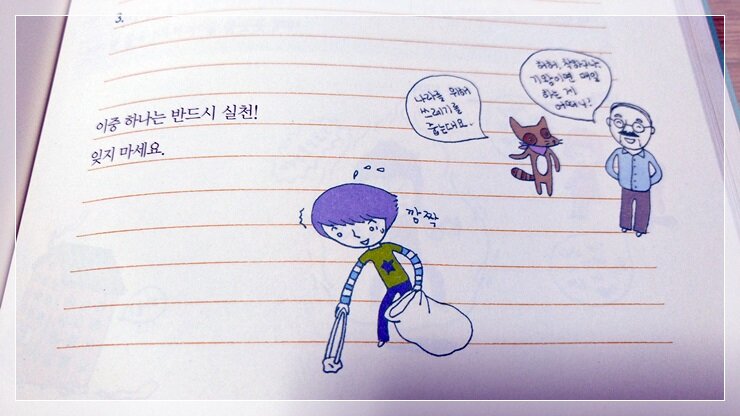 3.
이중 하나는 반드시 실천!
잊지 마세요.
나라를 위해
쓰레기를
줍는대요.
허허, 착하구나.
기왕이면 매일
하는 게
어떠니?
깜짝